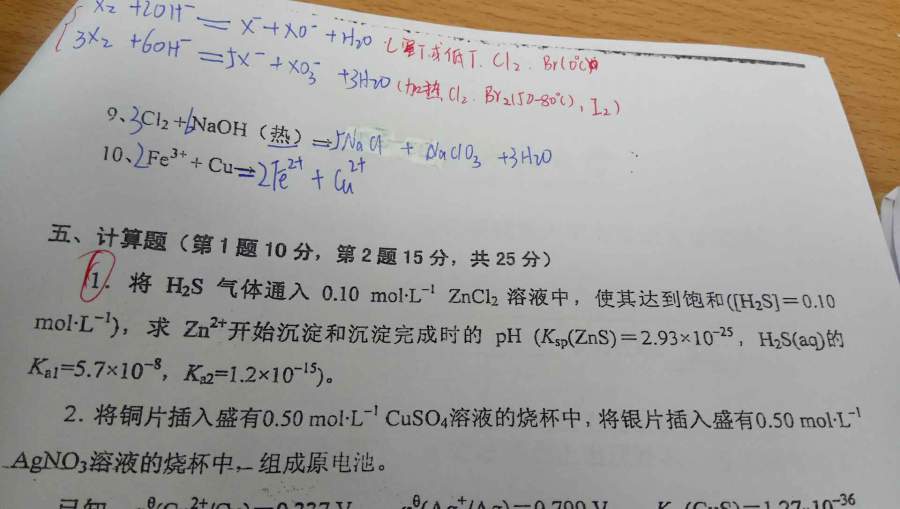 X₂ + 2OH⁻ = X⁻ + XO⁻ + H₂O (室T或低T. Cl₂. Br₂(0℃))
3X₂ + 6OH⁻ = 5X⁻ + XO₃⁻ + 3H₂O (加热 Cl₂. Br₂(50-80℃), I₂)
9、3Cl₂ + 6NaOH（热）=5NaCl + NaClO₃ + 3H₂O
10、2Fe³⁺ + Cu=2Fe²⁺ + Cu²⁺
五、计算题（第1题10分，第2题15分，共25分）
1. 将 H₂S 气体通入 0.10 mol·L⁻¹ ZnCl₂ 溶液中，使其达到饱和([H₂S]=0.10
mol·L⁻¹)，求 Zn²⁺开始沉淀和沉淀完成时的 pH (Ksp(ZnS)=2.93×10⁻²⁵，H₂S(aq)的
Ka1=5.7×10⁻⁸，Ka2=1.2×10⁻¹⁵)。
2. 将铜片插入盛有0.50 mol·L⁻¹ CuSO₄溶液的烧杯中，将银片插入盛有0.50 mol·L⁻¹
AgNO₃溶液的烧杯中，组成原电池。
已知 φᶿ(Cu²⁺/Cu)=0.337 V φᶿ(Ag⁺/Ag)=0.799 V K (CuS)=1.27×10⁻³⁶